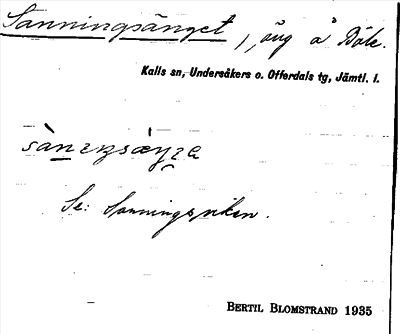 Sanningsänget, äng å Böle.
Kalls sn, Undersåkers o. Offerdals tg, Jämtl. l.
Se: Sanningsviken.
BERTIL BLOMSTRAND 1935